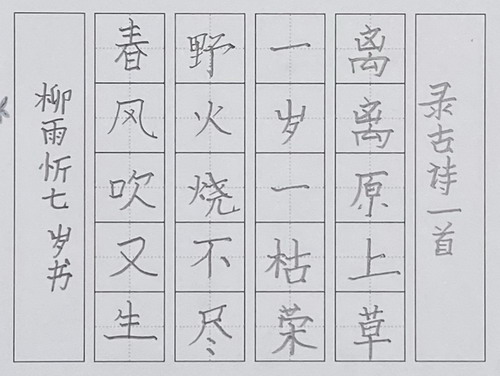 录古诗一首
离离原上草
一岁一枯荣
野火烧不尽
春风吹又生
柳雨忻七岁书